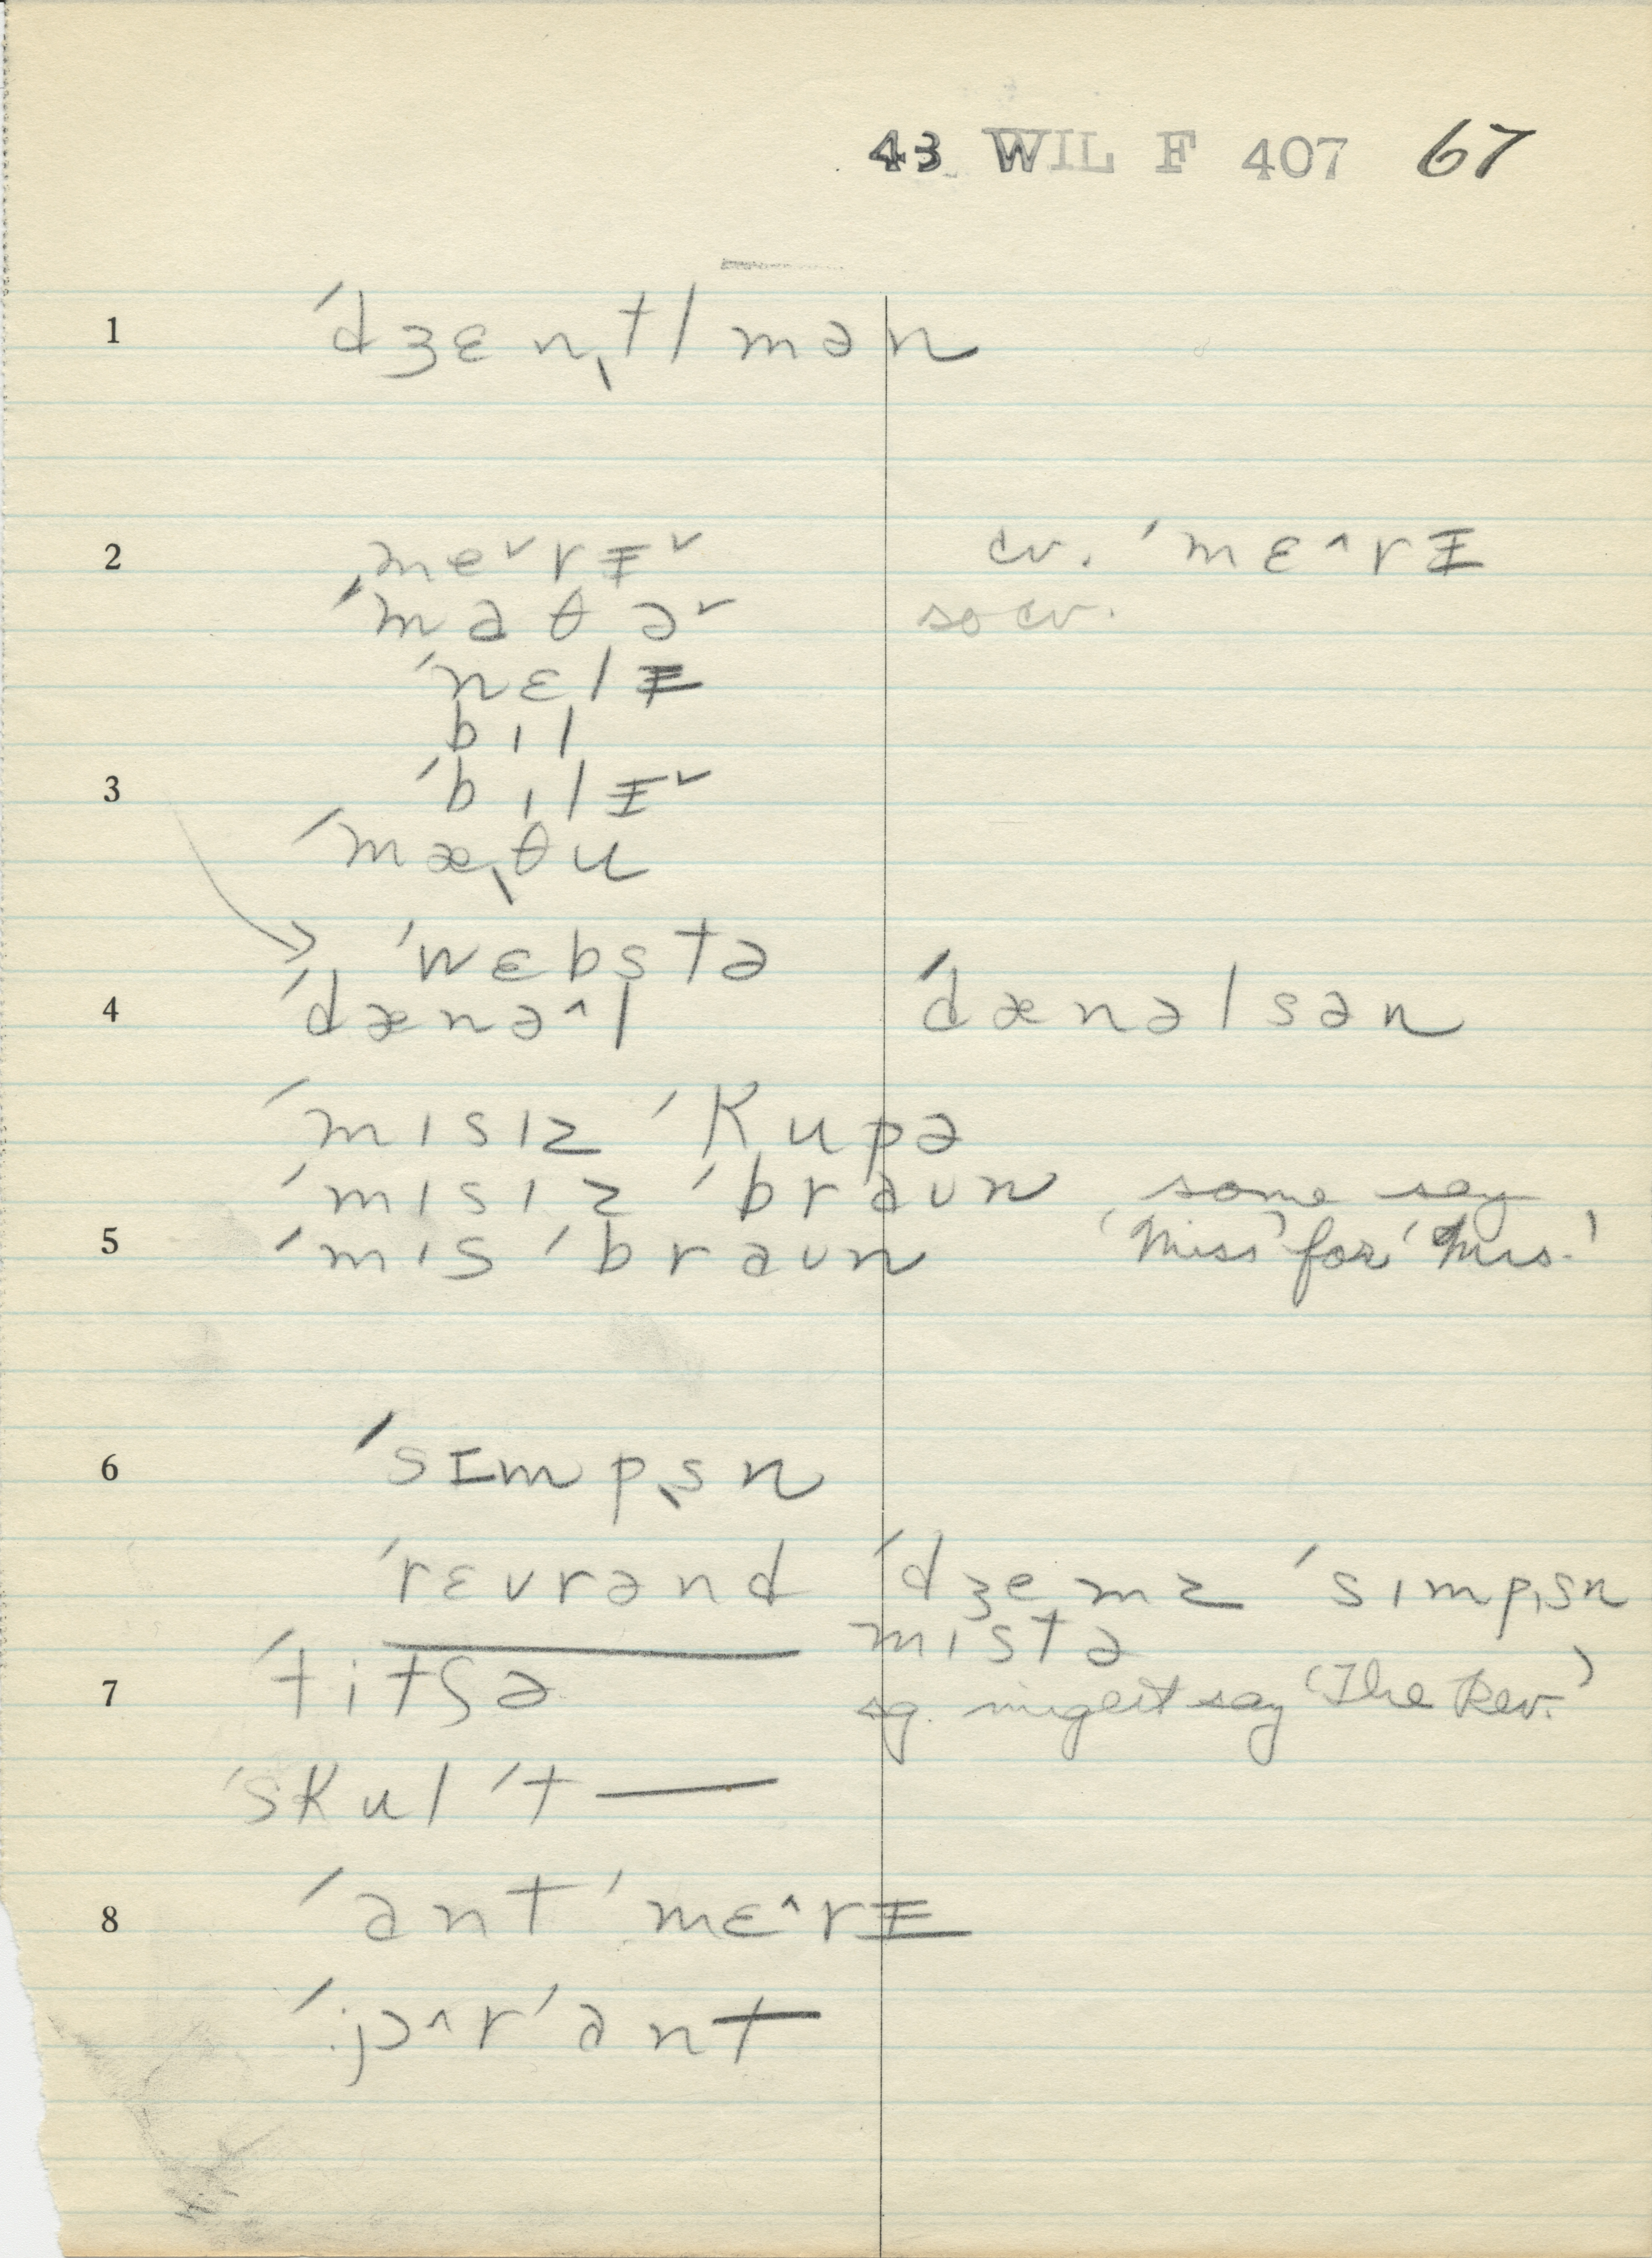 43 WIL F 407 67
1 ˈdʒɛnˌtlmən
2 meˇrɪˇ cv. ˈmɛ^rɪ
ˈmaθəˇ so cv.
ˈnɛlɪ
bɪl
3 ˈbɪlɪˇ
ˈmæˌθu
→ ˈwɛbstə
4 ˈdænə^l ˈdænəlsən
ˈmɪsɪz ˈkupə
ˈmɪsɪz ˈbraun some say
5 ˈmɪs ˈbraun 'Miss' for 'Mrs.'
6 ˈsɪmpˌsn
ˈrɛvrənd ˈdʒemz ˈsɪmpˌsn
mɪstə
7 ˈtitʃə sg. might say 'The Rev.'
ˈskul ˈt—
8 ˈant ˈmɛ^rɪ
ˈjɔ^r ˈant